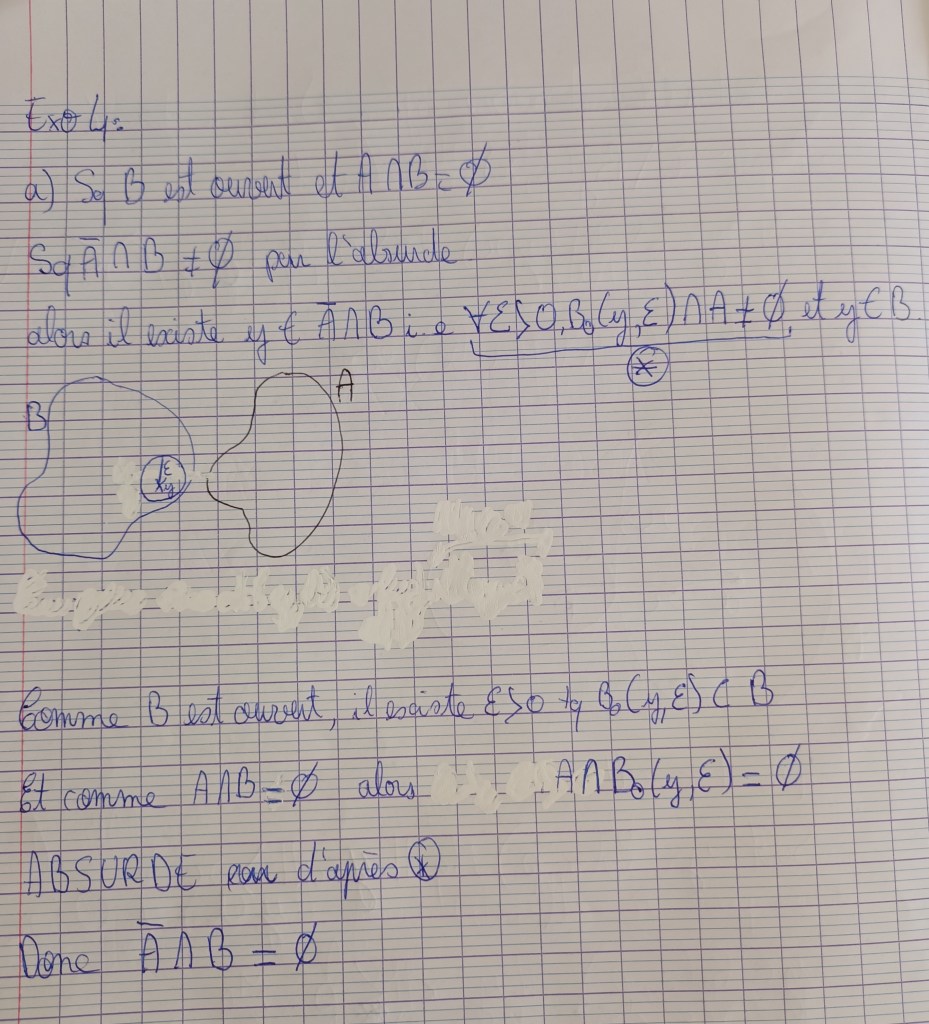 Exo 4:
a) Sq B est ouvert et A∩B = ∅
Sq Ā∩B ≠ ∅ par l'absurde
alors il existe y ∈ Ā∩B i.e ∀ε>0, B₀(y,ε)∩A ≠ ∅, et y∈B.
(*)
A
B
ε
xy
Comme B est ouvert, il existe ε>0 tq B₀(y,ε) ⊂ B
Et comme A∩B = ∅ alors A∩B₀(y,ε) = ∅
ABSURDE car d'après (*)
Donc Ā∩B = ∅